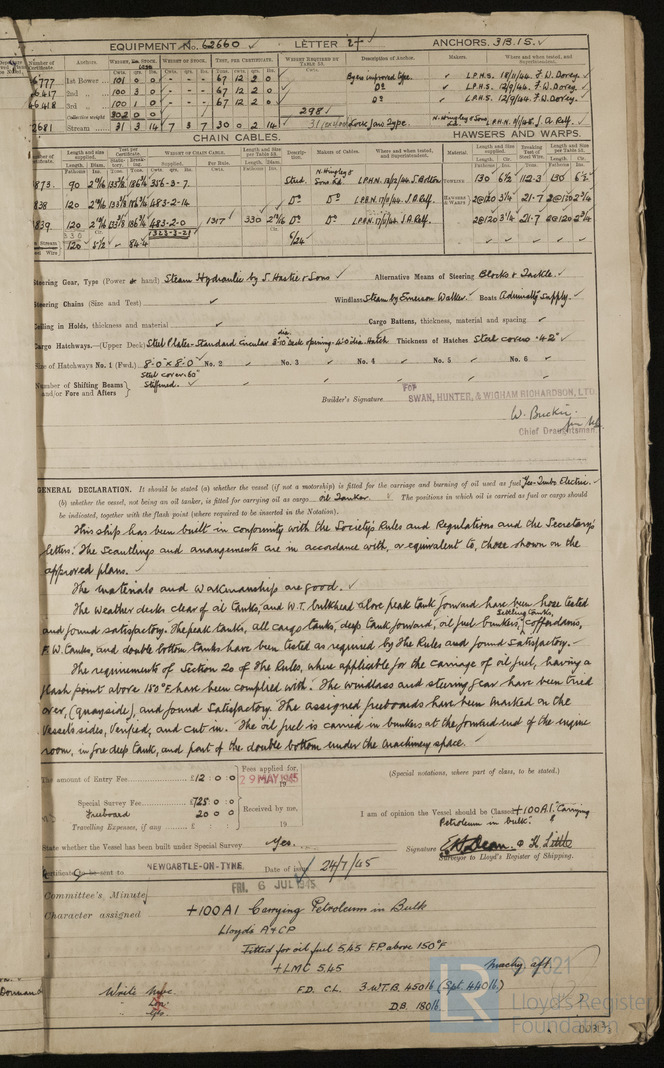 EQUIPMENT No. 62660 LETTER 2† ANCHORS. 3B. 1S.
Number of Certificate. Anchors. WEIGHT, Ex. STOCK. WEIGHT OF STOCK. TEST, PER CERTIFICATE. WEIGHT REQUIRED BY TABLE 53. Description of Anchor. Makers. Where and when tested, and Superintendent.
Cwts. qrs. lbs. Cwts. qrs. lbs. Tons. cwts. qrs. lbs. Cwts.
777 1st Bower 101 0 0 - - - 67 12 2 0 Byers improved type. L.P.H.S. 18/11/44. F.W. Dorey.
6417 2nd 100 3 0 - - - 67 12 2 0 Do L.P.H.S. 12/9/44. F.W. Dorey.
6418 3rd 100 1 0 - - - 67 12 2 0 Do L.P.H.S. 12/9/44. F.W. Dorey.
Collective weight 302 0 0 298
2681 Stream 31 3 14 7 3 7 30 0 2 14 N. Hingley & Sons Ld. J.A. Relf.
CHAIN CABLES. HAWSERS AND WARPS.
Length and size supplied. Test per Certificate. WEIGHT OF CHAIN CABLE. Length and size per Table 53. Description. Makers of Cables. Where and when tested, and Superintendent. Material Length and size supplied. Breaking Test of Steel Wire. Length and size per Table 53.
Length. Diam. Supplied. Per Rule. Length. Diam. Length. Cir. Tons. Length. Cir.
Fathoms Ins. Tons. Tons. Fathoms Ins. Fathoms Ins. Fathoms Ins.
873. 90 356-3-7. Stud. N. Hingley & Sons Ld. TOWLINE 130 6½ 112.3 130 6½
838 120 483-2-14. Do Do L.P.H.N. J.A. Relf. HAWSERS & WARPS 2@120 3¼ 21.7 2@120 2¾
839 120 483-2-0 1317 330 Do Do L.P.H.N. J.A. Relf. 2@120 3¼ 21.7 2@120 2¾
330 1323-3-21
Stream 120 5½ 84.4 6/24
Steel Wire
Steering Gear, Type (Power or hand) Steam Hydraulic by J. Hastie & Sons Alternative Means of Steering Blocks & Tackle.
Steering Chains (Size and Test) Windlass Steam by Emerson Walker. Boats Admiralty Supply.
Ceiling in Holds, thickness and material Cargo Battens, thickness, material and spacing
Cargo Hatchways.—(Upper Deck) Steel Plates - Standard Circular 8'-10" dia. Deck opening. Thickness of Hatches Steel covers .42"
Size of Hatchways No. 1 (Fwd.) 8'-0" x 8'-0" No. 2 No. 3 No. 4 No. 5 No. 6
Steel cover .60"
Number of Shifting Beams Stiffened.
and/or Fore and Afters
Builder's Signature FOR SWAN, HUNTER, & WIGHAM RICHARDSON, LTD.
W. Buckie.
Chief Draughtsman
GENERAL DECLARATION. It should be stated (a) whether the vessel (if not a motorship) is fitted for the carriage and burning of oil used as fuel Yes. Turbo Electric.
(b) whether the vessel, not being an oil tanker, is fitted for carrying oil as cargo oil Tanker The positions in which oil is carried as fuel or cargo should
be indicated, together with the flash point (where required to be inserted in the Notation).
This ship has been built in conformity with the Society's Rules and Regulations and the Secretary's
letters. The scantlings and arrangements are in accordance with, or equivalent to, those shown on the
approved plans.
The materials and workmanship are good.
The weather decks clear of oil tanks, and W.T. bulkhead above peak tank forward have been hose tested
and found satisfactory. The peak tanks, all cargo tanks, deep tank forward, oil fuel bunkers, settling tanks, cofferdams,
F.W. tanks, and double bottom tanks have been tested as required by the Rules and found satisfactory.
The requirements of Section 20 of the Rules, where applicable for the carriage of oil fuel, having a
flash point above 150°F have been complied with. The windlass and steering gear have been tried
over, (quayside), and found satisfactory. The assigned freeboards have been marked on the
vessel's sides, verified, and cut in. The oil fuel is carried in bunkers at the forward end of the engine
room, in fore deep tank, and part of the double bottom under the machinery space.
The amount of Entry Fee £12 : 0 : 0 Fees applied for, (Special notations, where part of class, to be stated.)
29 MAY 1945
Special Survey Fee £725 : 0 : 0
Freeboard 20 0 0 Received by me, I am of opinion the Vessel should be Classed +100A1 "Carrying
Travelling Expenses, if any £ : : 19 Petroleum in bulk."
State whether the Vessel has been built under Special Survey Yes. Signature E.H. Dean. & H. Little
Surveyor to Lloyd's Register of Shipping.
Certificate to be sent to NEWCASTLE-ON-TYNE. Date of issue 24/7/45
Committee's Minute FRI. 6 JUL 1945
Character assigned +100A1 Carrying Petroleum in Bulk
Lloyds A & CP
Fitted for oil fuel 5,45 F.P. above 150°F
+LMC 5.45 Machy aft.
Write F.D. CL. 3 W.T.B. 450 lb (Spt. 440 lb.)
D.B. 180 lb
© 2021
LR Lloyd's Register
Foundation